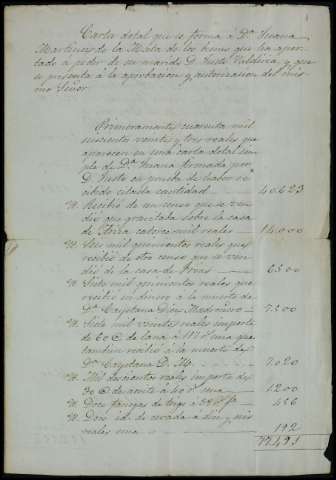 Carta dotal que se forma á Dª Juana
Martinez de la Mata de los bienes que ha apor-
tado á poder de su marido D. Justo Valdivia, y que
se presenta á la aprobacion y autorizacion del mis-
mo Señor.
Primeramente cuarenta mil
seiscientos veinte y tres reales que
aparecen en una carta dotal sim-
ple de Dª Juana firmada por
D. Justo en prueba de haber re-
cibido citada cantidad 40.623
Yt. Recibió de un censo que se ven-
dió que gravitaba sobre la casa
de catorce mil reales 14.000
Yt. Seis mil quinientos reales que
recibió de otro censo que se ven-
dió de la casa de 6.500
Yt. Siete mil quinientos reales que
recibió en dinero á la muerte de
Dª Cayetana Diez Madroñero 7.500
Yt. Siete mil veinte reales importe
de 60 @ de lana á 117 una que
tambien recibió á la muerte de
Dª Cayetana D. M. 7.020
Yt. Mil doscientos reales importe de
30 @ de aceite á 40 una 1.200
Yt. Doce fanegas de trigo á 38 456
Yt. Doce id. de cevada á diez y seis
reales una 192
77.491